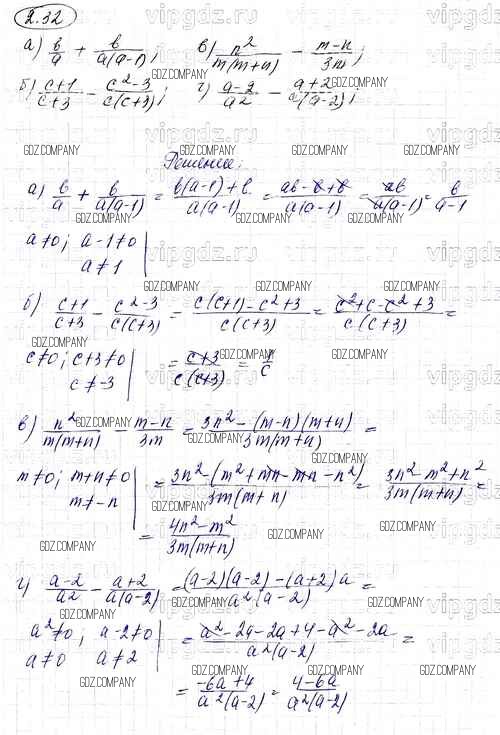 2.32
а) b/a + b/(a(a-1)); в) n²/(m(m+n)) - (m-n)/(3m);
б) (c+1)/(c+3) - (c²-3)/(c(c+3)); г) (a-2)/a² - (a+2)/(a(a-2));
Решение:
а) b/a + b/(a(a-1)) = (b(a-1)+b)/(a(a-1)) = (ab-b+b)/(a(a-1)) = ab/(a(a-1)) = b/(a-1)
a≠0; a-1≠0
a≠1
б) (c+1)/(c+3) - (c²-3)/(c(c+3)) = (c(c+1)-c²+3)/(c(c+3)) = (c²+c-c²+3)/(c(c+3)) =
c≠0; c+3≠0 = (c+3)/(c(c+3)) = 1/c
c≠-3
в) n²/(m(m+n)) - (m-n)/(3m) = (3n²-(m-n)(m+n))/(3m(m+n)) =
m≠0; m+n≠0 = (3n²-(m²+mn-mn-n²))/(3m(m+n)) = (3n²-m²+n²)/(3m(m+n)) =
m≠-n
= (4n²-m²)/(3m(m+n))
г) (a-2)/a² - (a+2)/(a(a-2)) = ((a-2)(a-2)-(a+2)a)/(a²(a-2)) =
a²≠0; a-2≠0 = (a²-2a-2a+4-a²-2a)/(a²(a-2)) =
a≠0 a≠2
= (-6a+4)/(a²(a-2)) = (4-6a)/(a²(a-2))
vipgdz.ru
GDZ.COMPANY